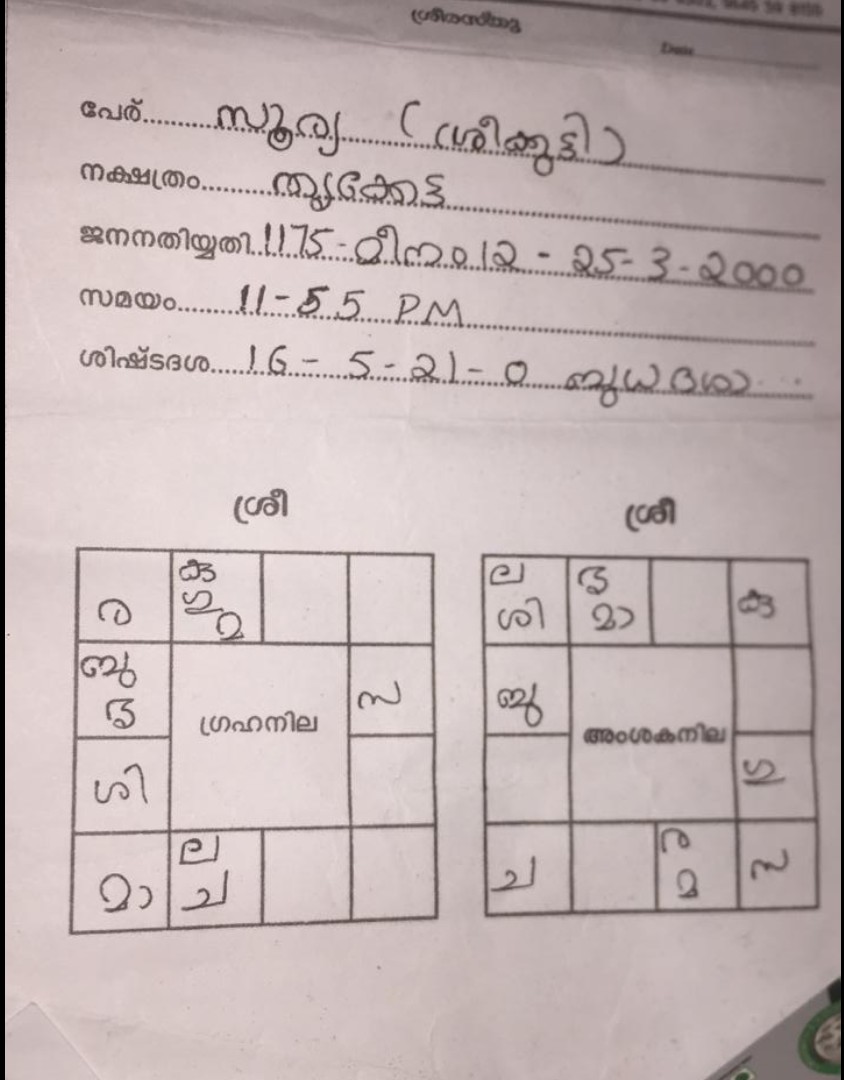 ശ്രീരസ്തു
Date
പേര് സൂര്യ (ശ്രീക്കുട്ടി)
നക്ഷത്രം തൃക്കേട്ട
ജനനതിയ്യതി 1175 - മീനം 12 - 25-3-2000
സമയം 11-55 PM
ശിഷ്ടദശ 16 - 5 - 21 - 0 ബുധ ദശ
ശ്രീ
ര
കു
ഗു
മ
ബു
സ
ഗ്രഹനില
ശി
മാ
ല
ച
ശ്രീ
ല
ശി
മാ
കു
ബു
അംശകനില
ഗു
ച
ര
മ
സ